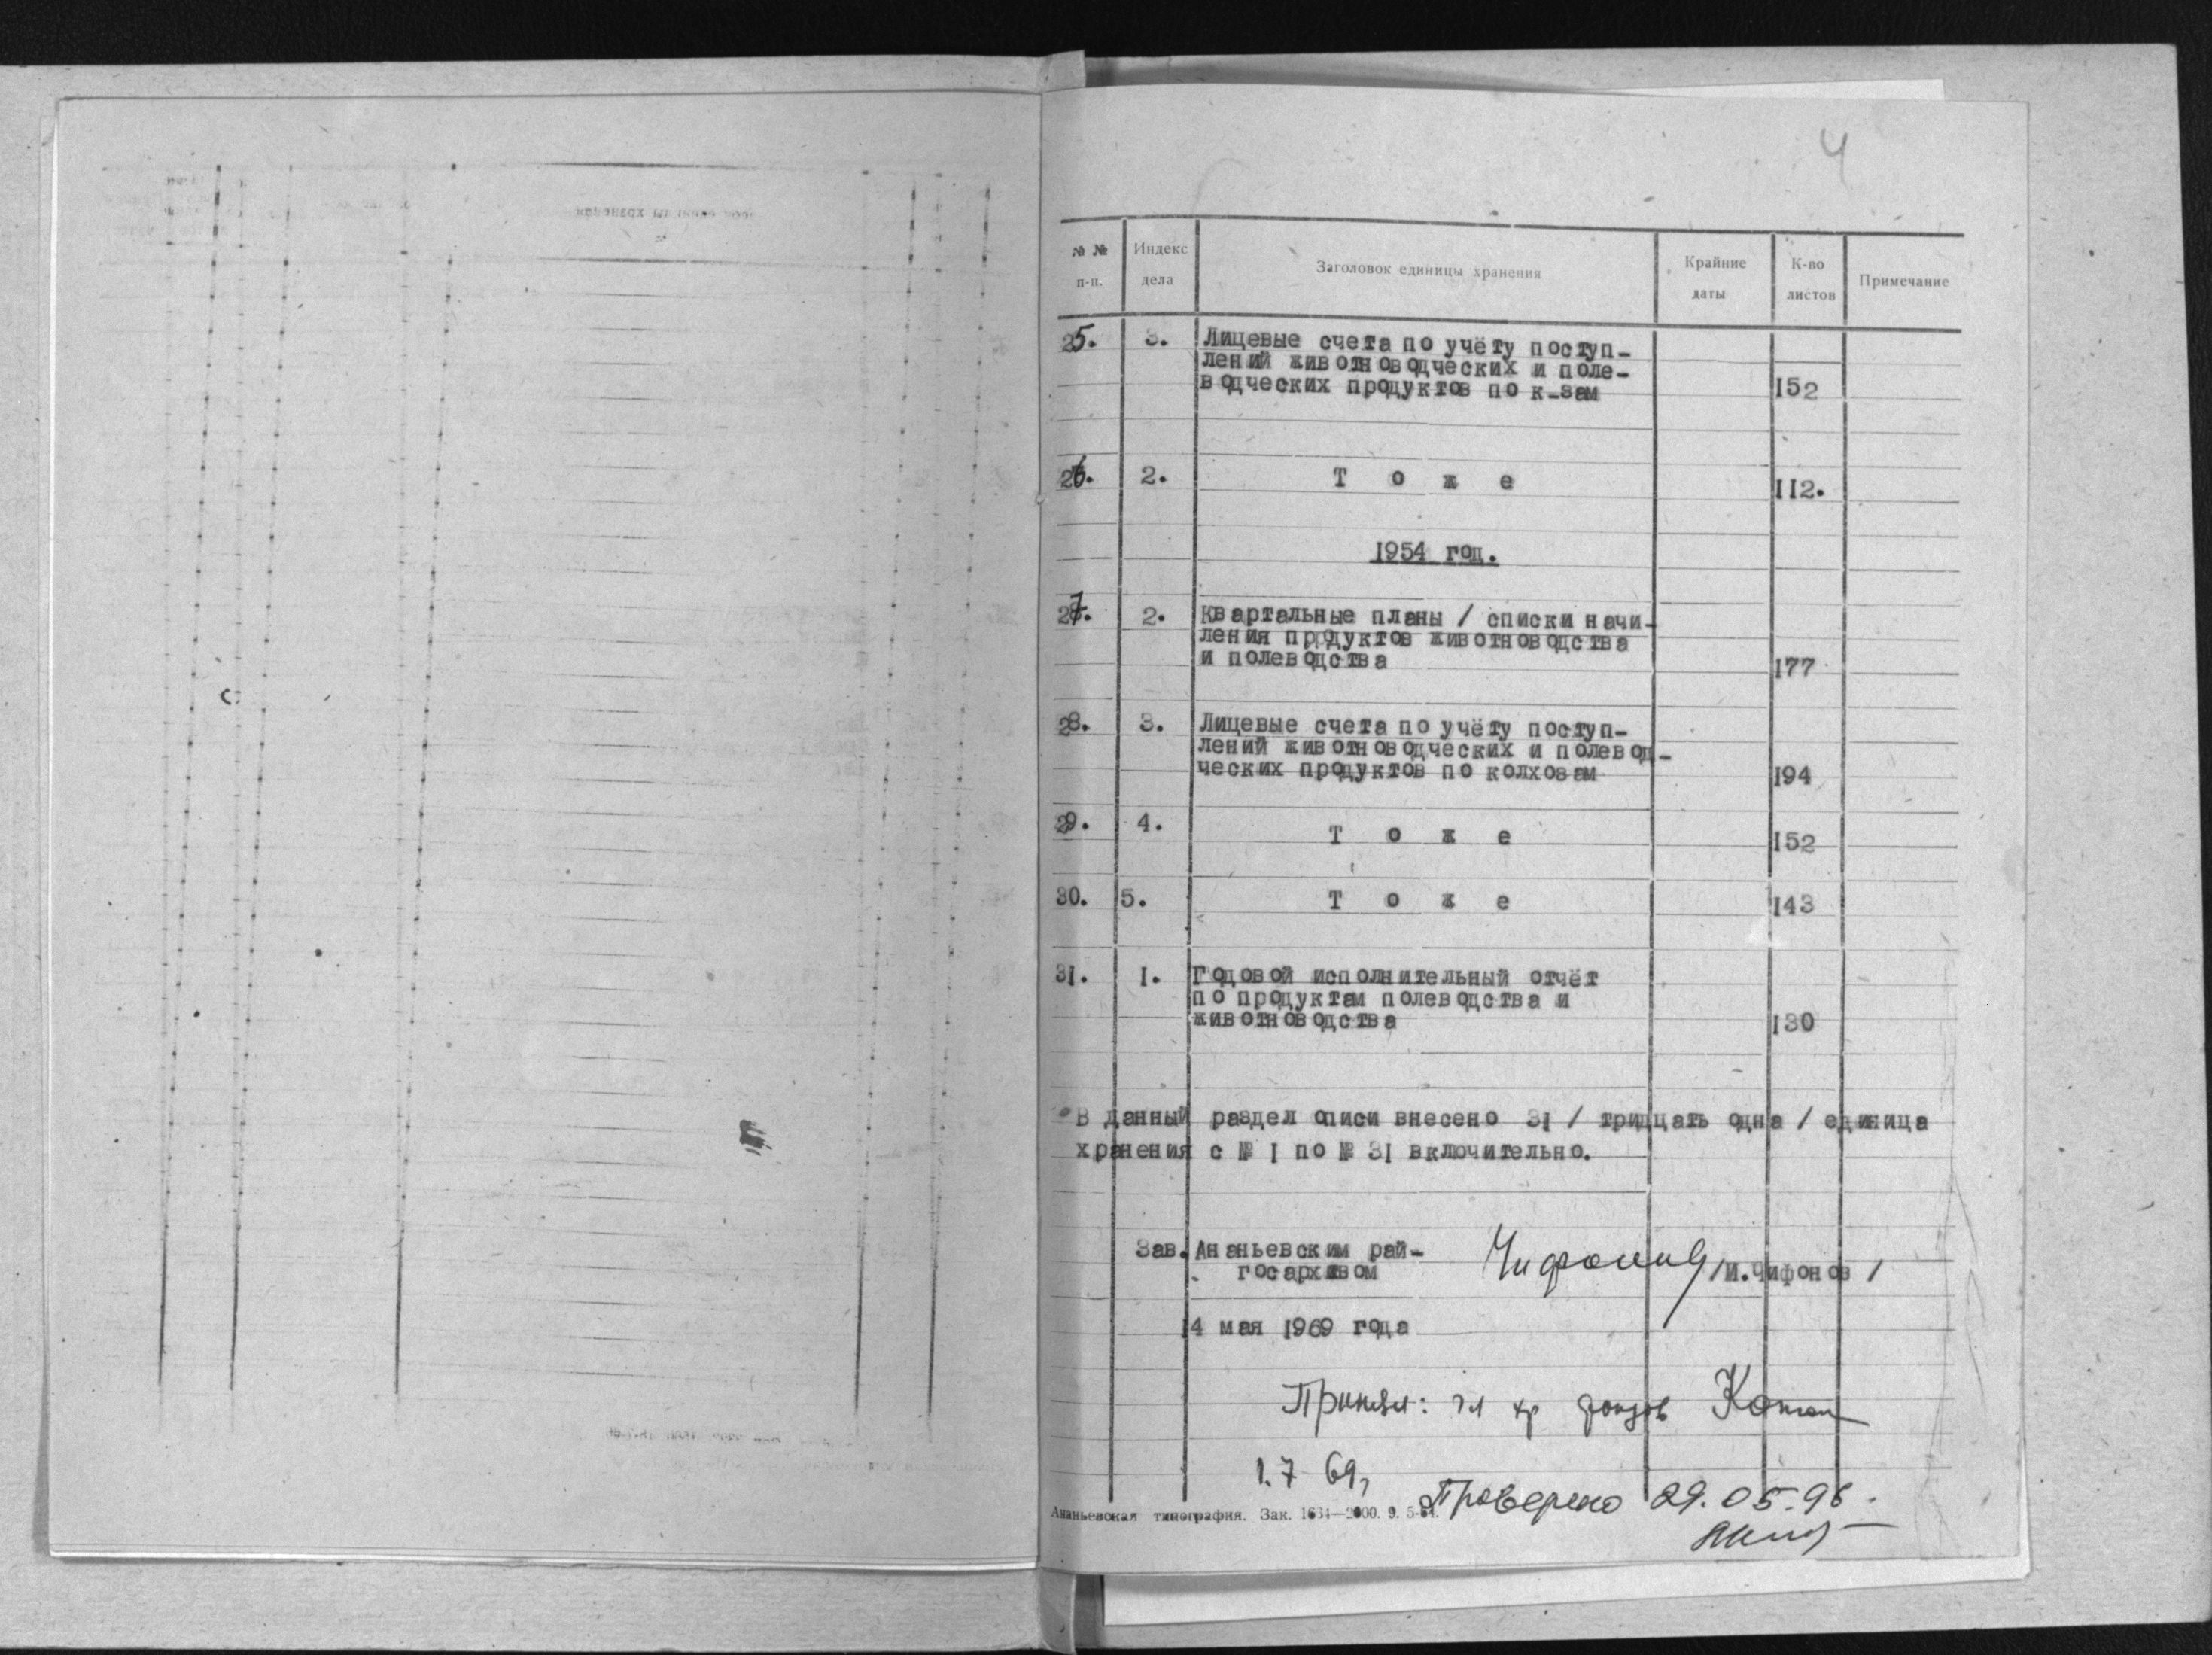 4
№ № п-п. Индекс дела Заголовок единицы хранения Крайние даты К-во листов Примечание
25. 3. Лицевые счета по учёту поступ-
лений животноводческих и поле-
водческих продуктов по к-зам 152
26. 2. Т о ж е 112.
1954 год.
27. 2. Квартальные планы / списки начи-
ления продуктов животноводства
и полеводства 177
28. 3. Лицевые счета по учёту поступ-
лений животноводческих и полевод-
ческих продуктов по колхозам 194
29. 4. Т о ж е 152
30. 5. Т о ж е 143
31. 1. Годовой исполнительный отчёт
по продуктам полеводства и
животноводства 130
В данный раздел описи внесено 31 / тридцать одна / единица
хранения с № 1 по № 31 включительно.
Зав. Ананьевским рай-
госархивом Чифонов /И.Чифонов /
14 мая 1969 года
Принял: гл хр фондов
1.7 69,
Проверено 29.05.96.
Ананьевская типография. Зак. 1634—2000. 9. 5-64.